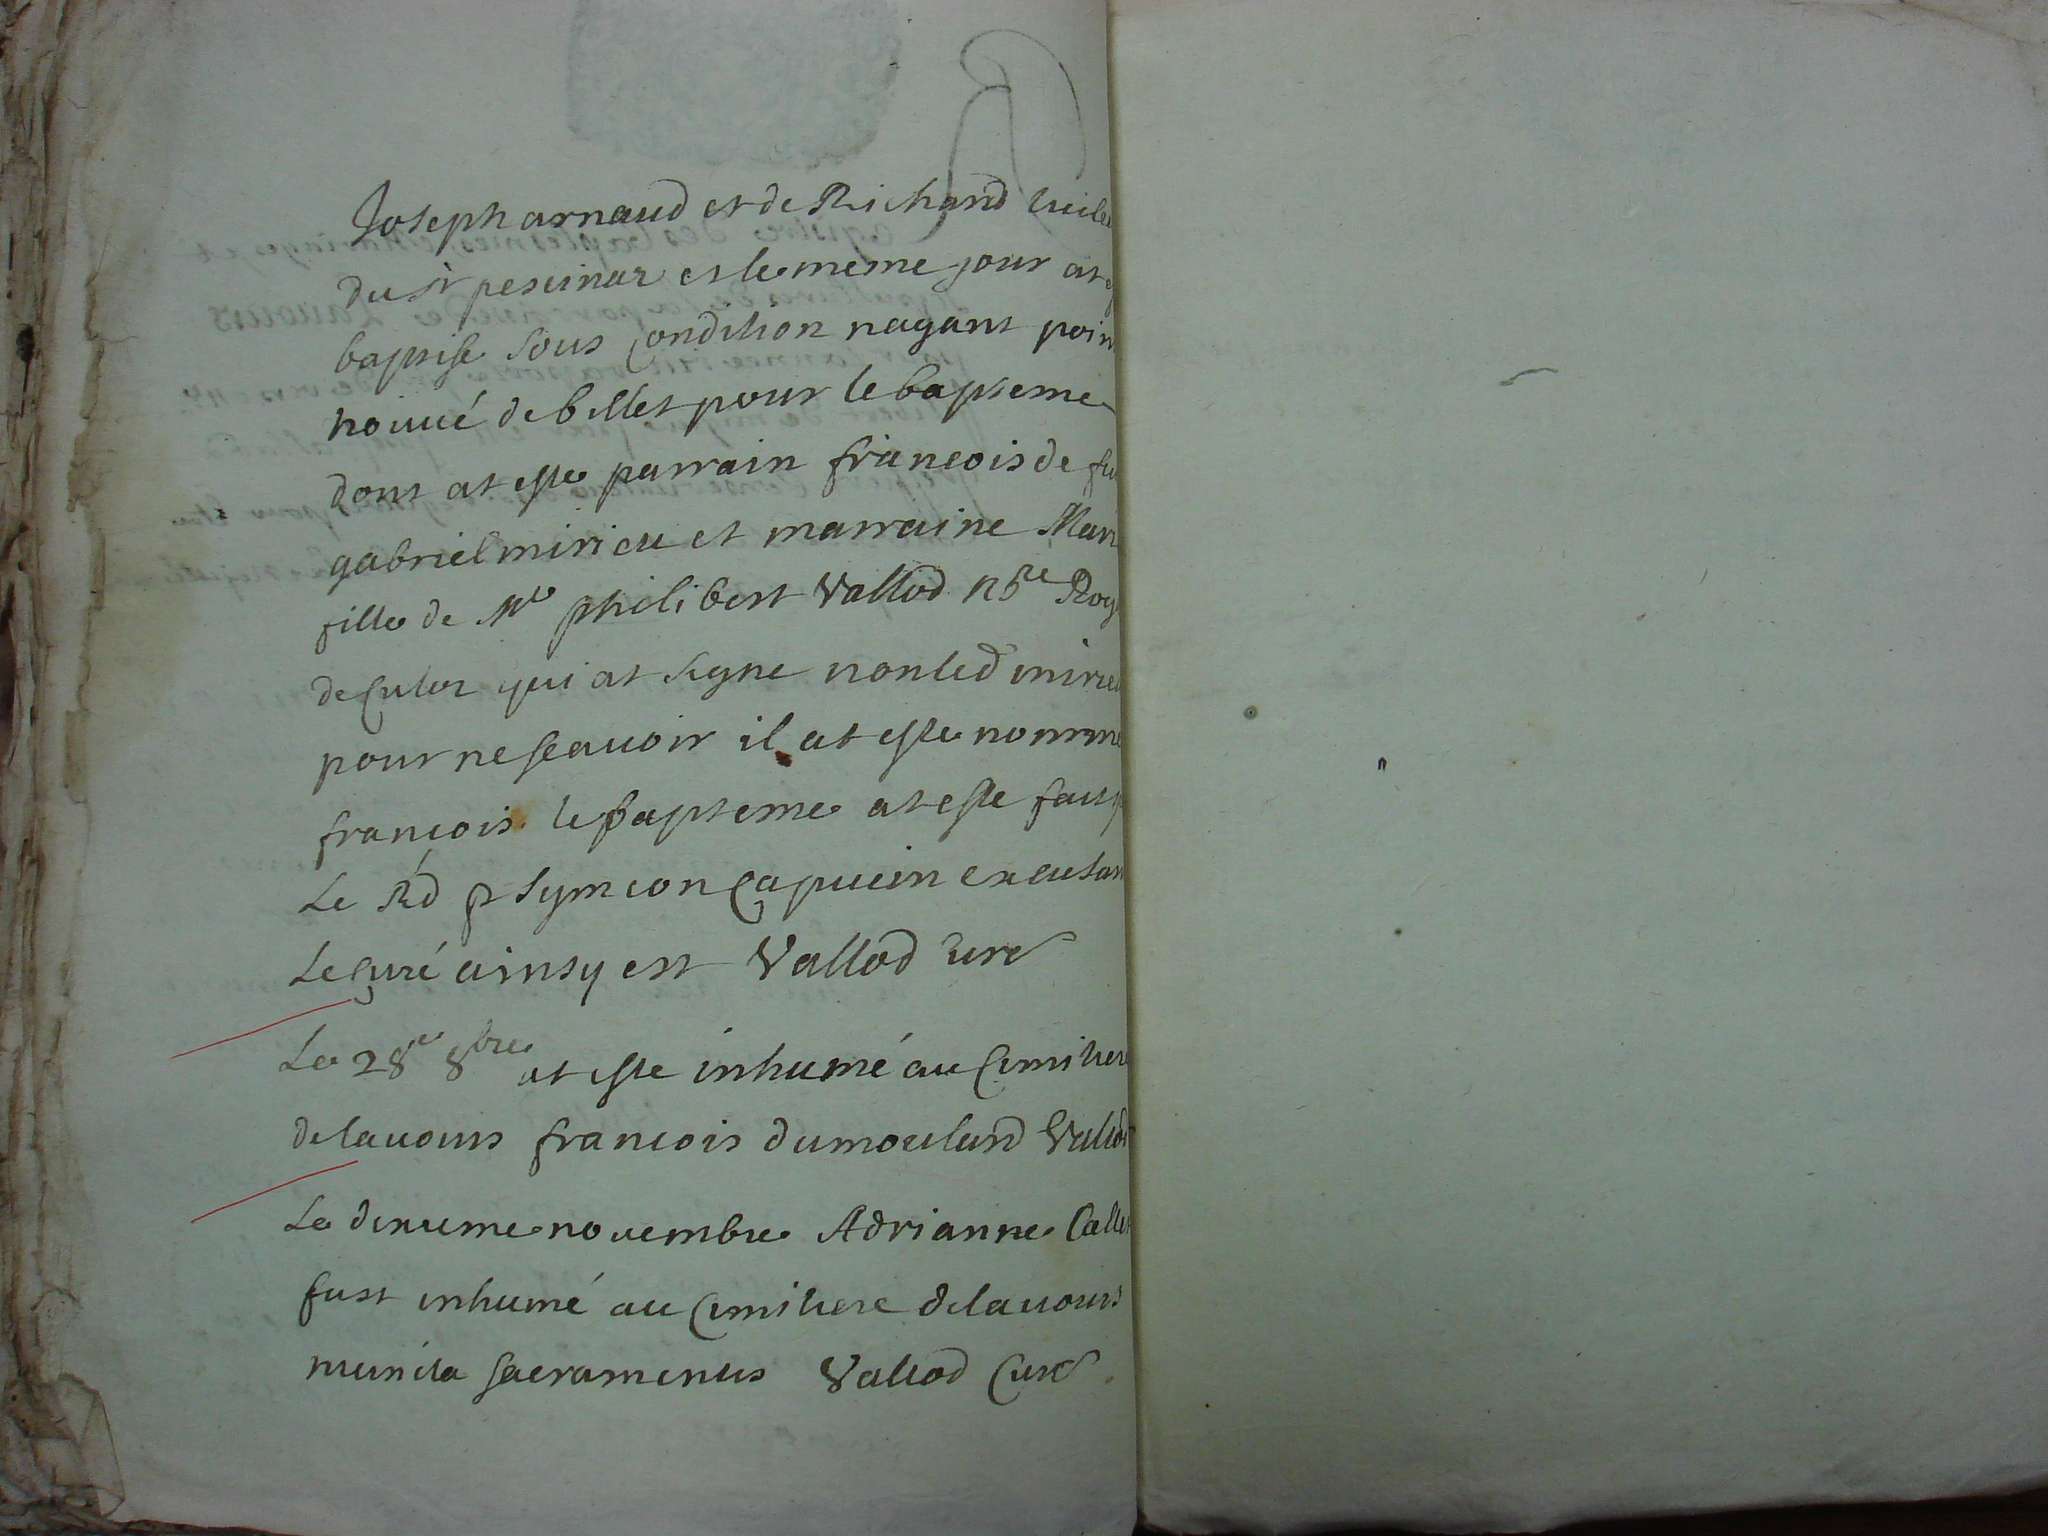 Joseph arnaud et de Richard
du sr pescinar et le meme jour at
baptisé sous Condition nayant poin
trouué de billet pour le bapteme
dont at este parrain francois de fu
gabriel mirieu et marraine Mari
fille de Me philibert Vallod Nre Roy
de Culoz qui at signe non led mirieu
pour ne scauoir il at este nomme
francois le Bapteme at este fait p
Le Rd p symeon Capucin excusan
Le Curé ainsy est Vallod Curé
Le 28e 8bre at este inhumé au Cimitiere
de lauours francois dumoulard Vallod
Le dixieme nouembre Adrianne Callet
fust inhumé au Cimitiere de lauours
munita sacramentis Vallod Curé